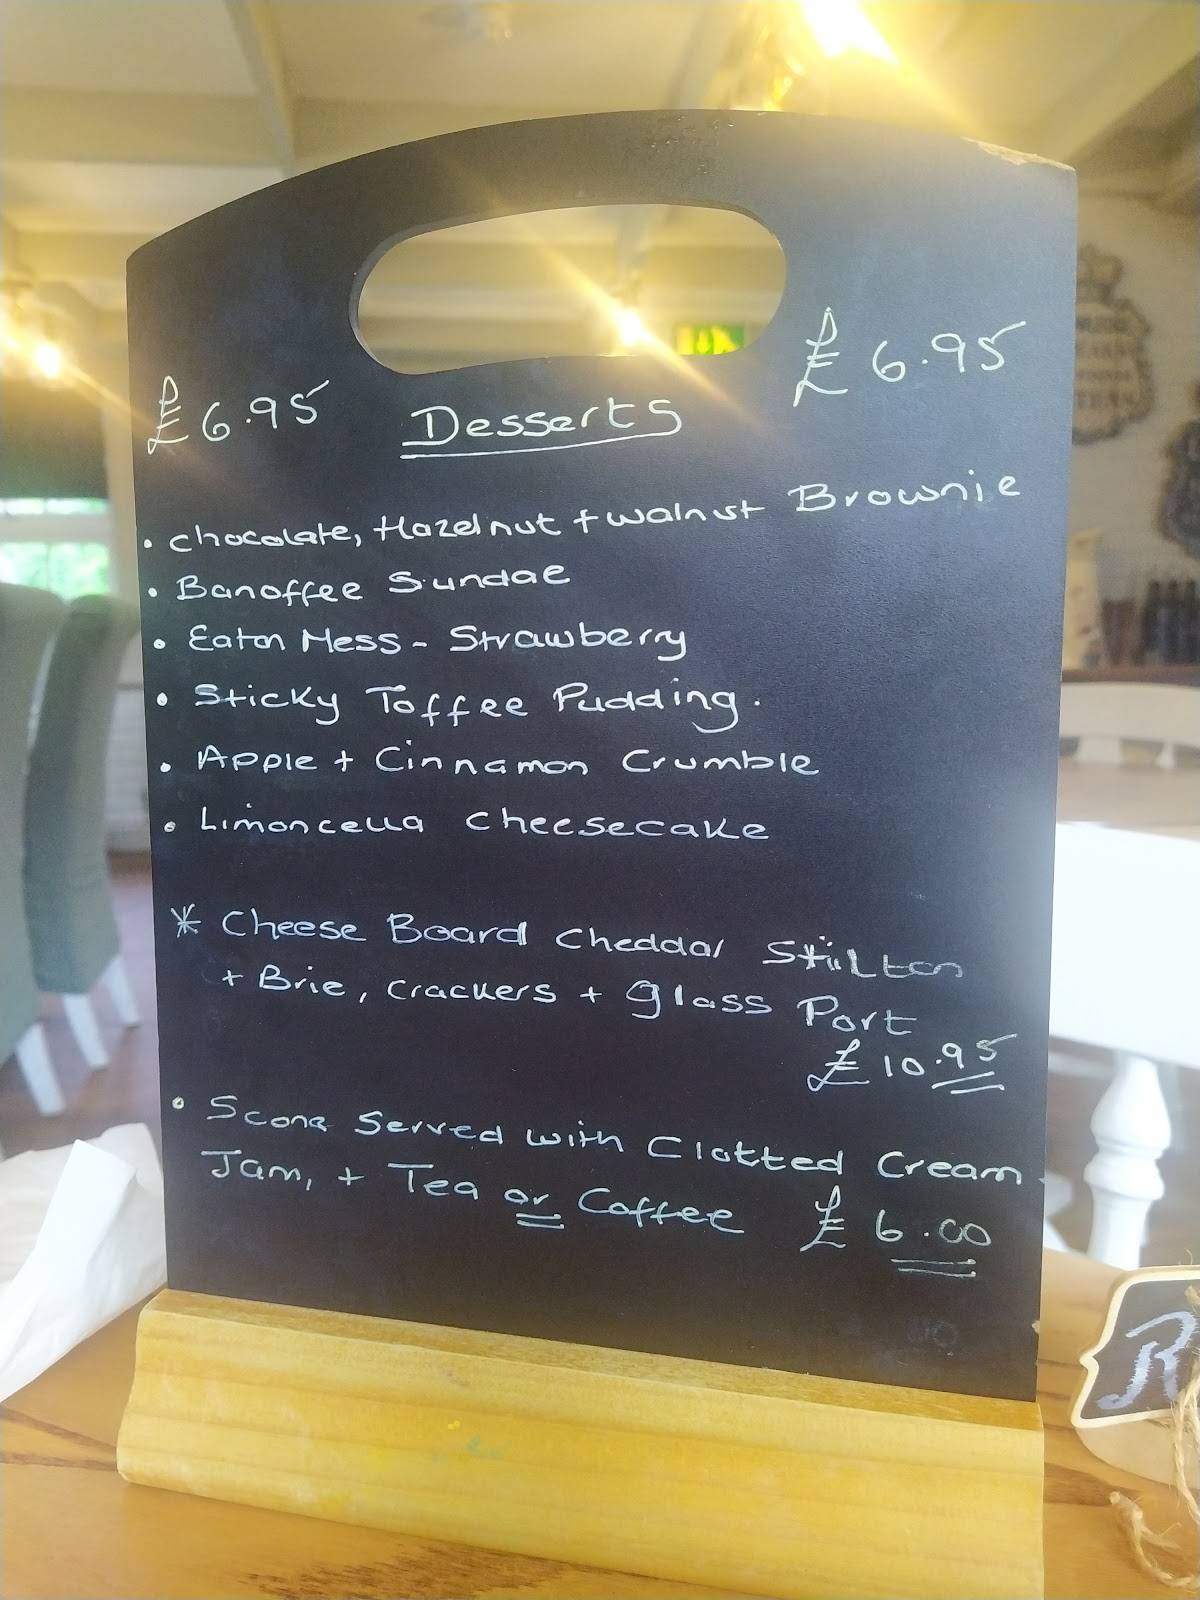 £6.95 Desserts £6.95
• Chocolate, Hazelnut + walnut Brownie
• Banoffee Sundae
• Eaton Mess - Strawberry
• Sticky Toffee Pudding.
• Apple + Cinnamon Crumble
• Limoncella Cheesecake
* Cheese Board Cheddar Stilton
+ Brie, Crackers + glass Port
£10.95
• Scone Served with Clotted Cream
Jam, + Tea or Coffee £6.00
R